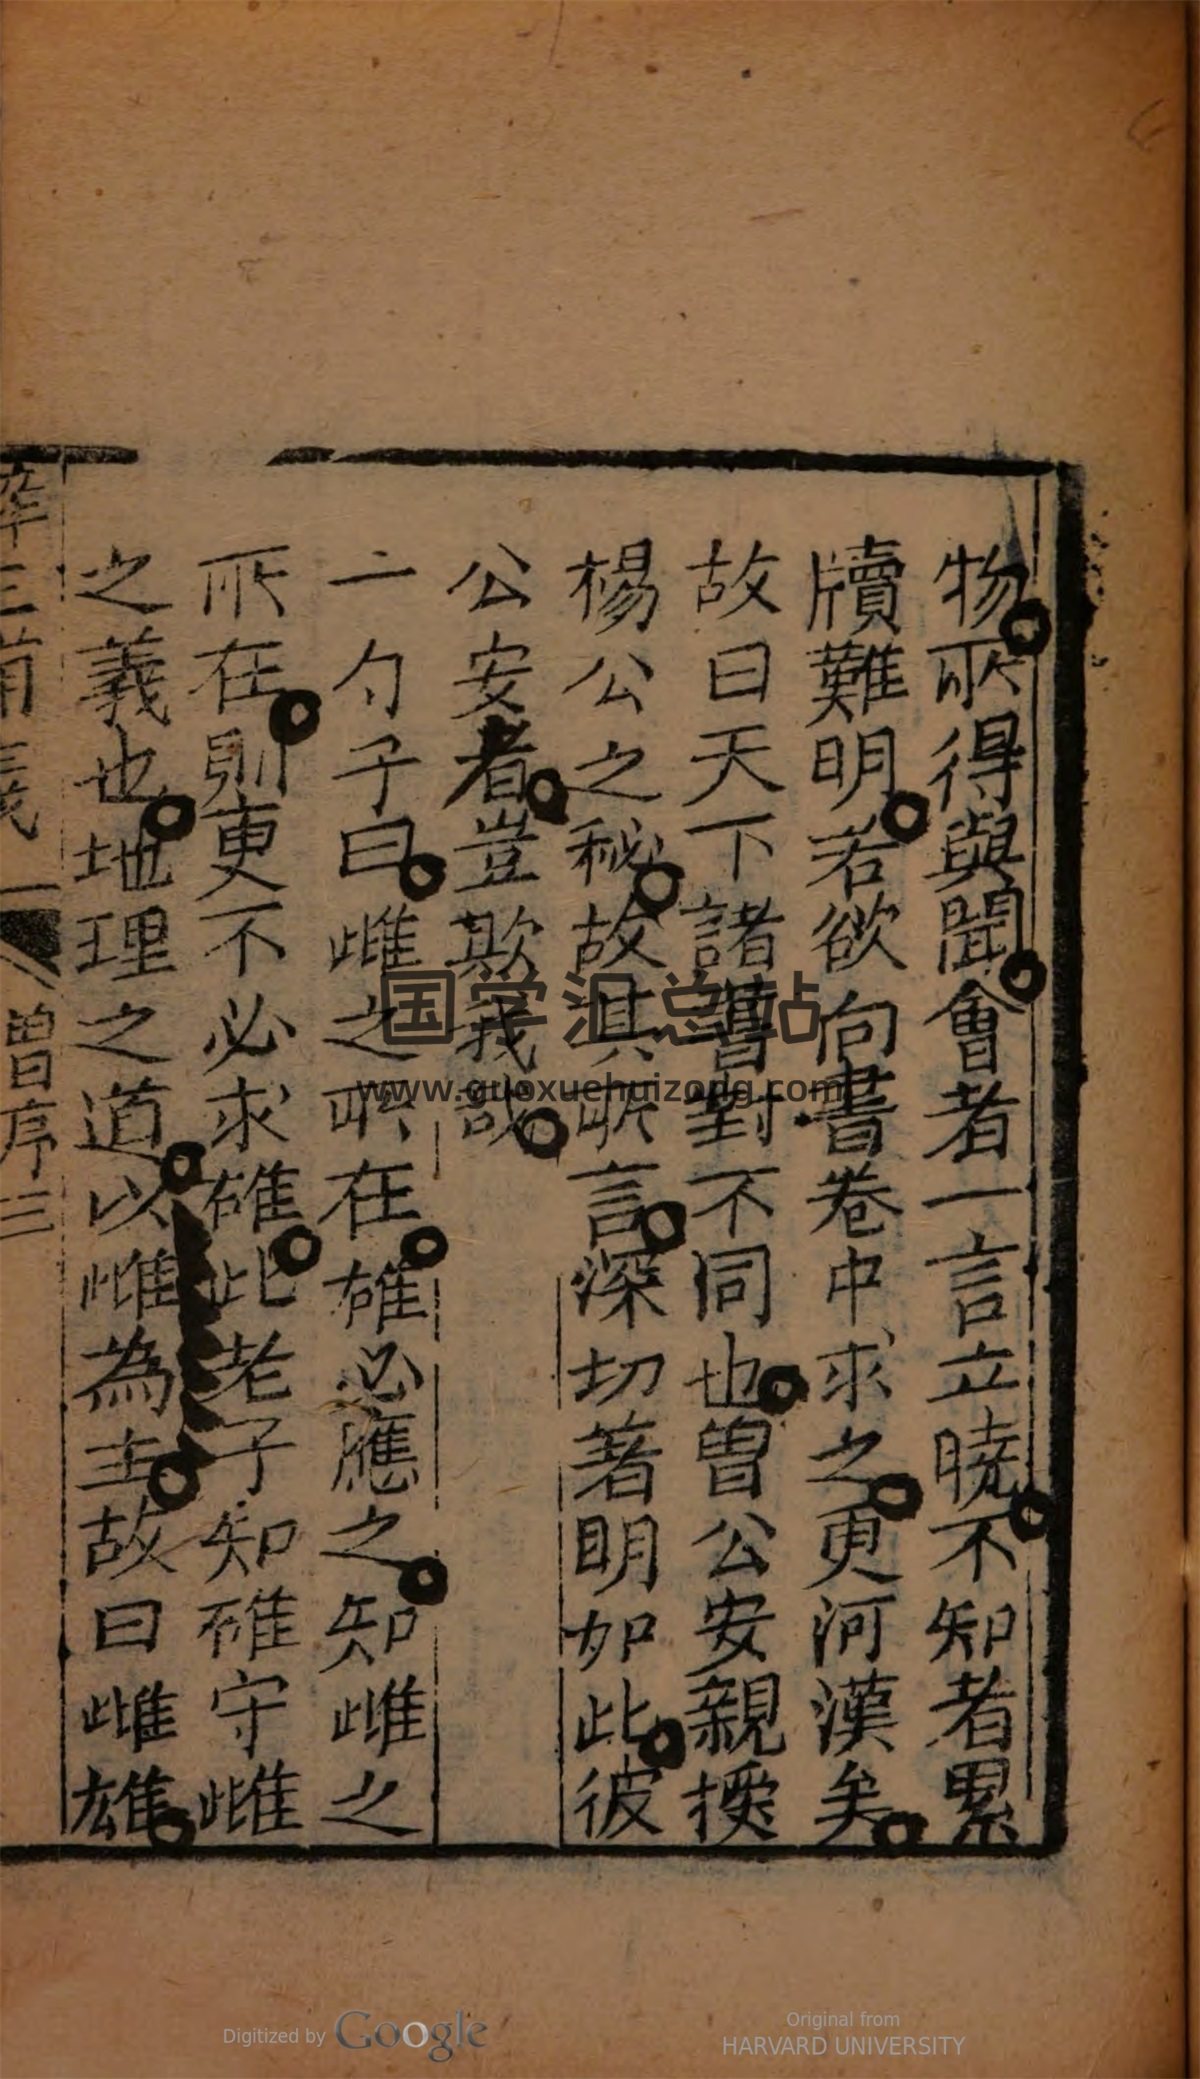 物所得與聞會者一言立曉不知者累
牘難明若欲向書卷中求之更河漢矣
故曰天下諸書對不同也曾公安親授
楊公之秘故其所言深切著明如此彼
公安者豈欺我哉
一勺子曰雌之所在雄必應之知雌之
所在則更不必求雄此老子知雄守雌
之義也地理之道以雌為主故曰雌雄
曾序三
国学汇总站
www.guoxuehuizong.com
Digitized by Google
Original from
HARVARD UNIVERSITY